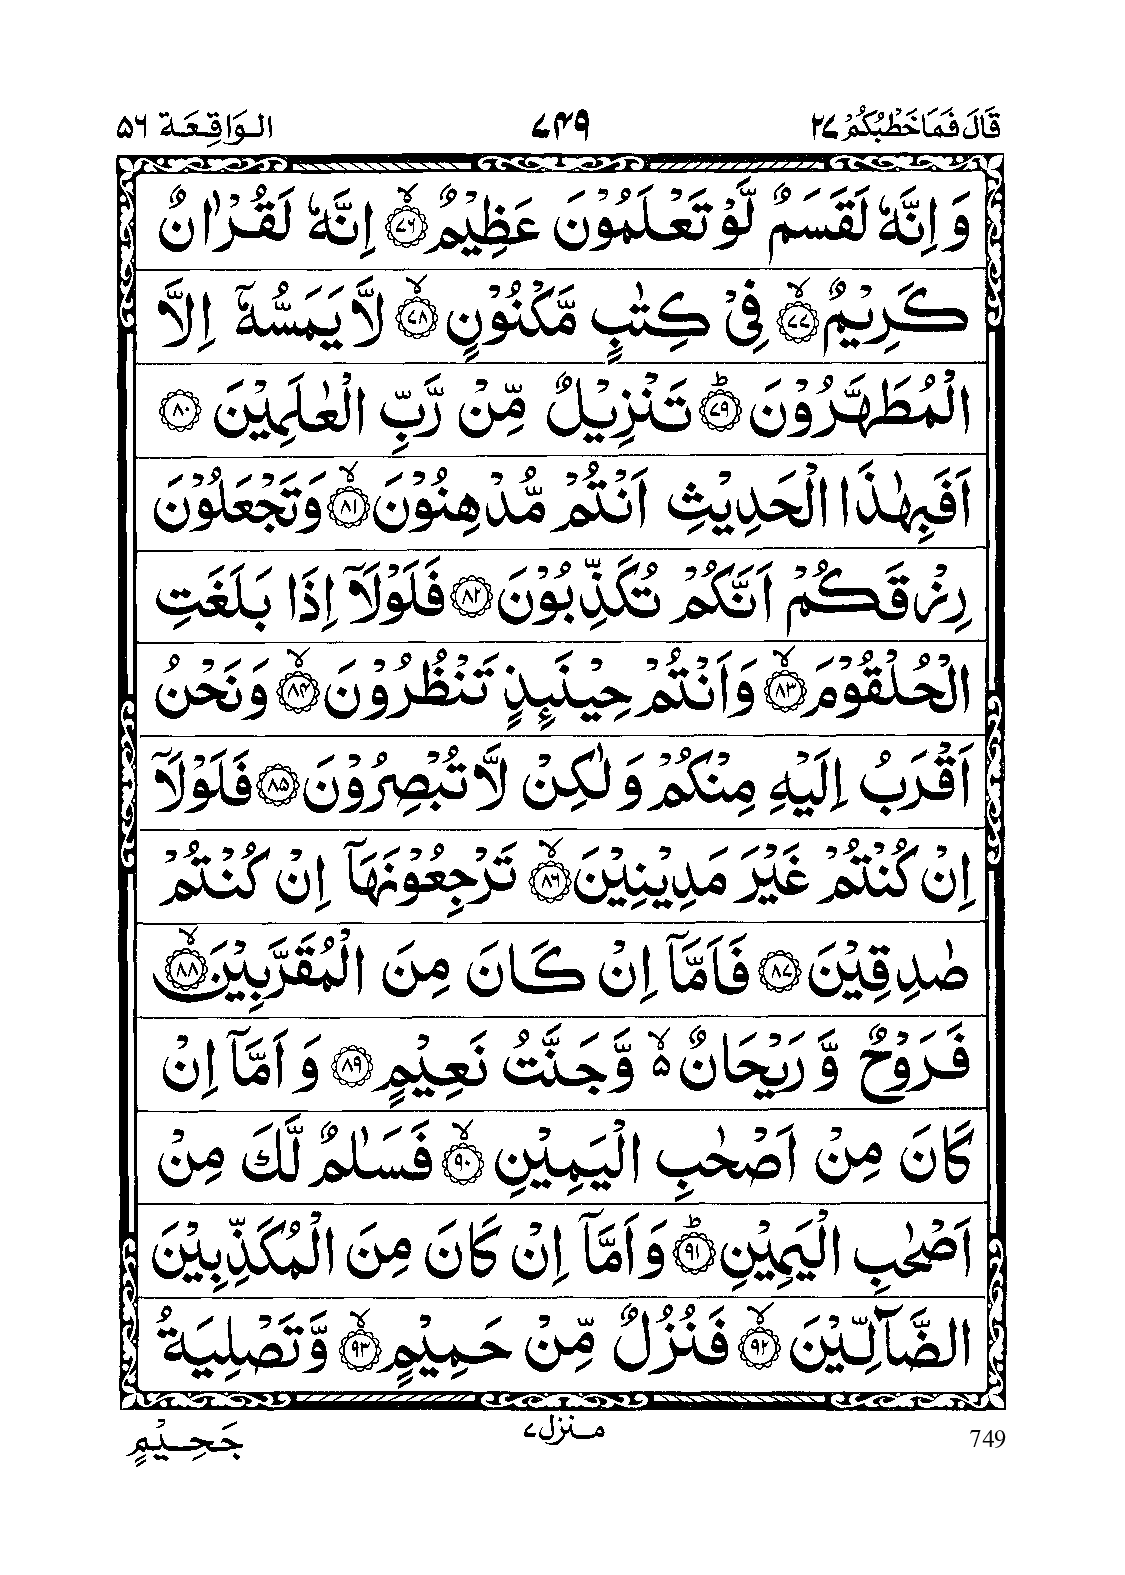 قَالَ فَمَاخَطْبُكُمْ ۲۷ ۷۴۹ الـوَاقِـعَـة ۵۶
وَ اِنَّهٗ لَقَسَمٌ لَّوْ تَعْلَمُوْنَ عَظِيْمٌ ۙ﴿۷۶﴾ اِنَّهٗ لَقُرْاٰنٌ
كَرِيْمٌ ۙ﴿۷۷﴾ فِيْ كِتٰبٍ مَّكْنُوْنٍ ۙ﴿۷۸﴾ لَّا يَمَسُّهٗۤ اِلَّا
الْمُطَهَّرُوْنَ ؕ﴿۷۹﴾ تَنْزِيْلٌ مِّنْ رَّبِّ الْعٰلَمِيْنَ ﴿۸۰﴾
اَفَبِهٰذَا الْحَدِيْثِ اَنْتُمْ مُّدْهِنُوْنَ ۙ﴿۸۱﴾ وَتَجْعَلُوْنَ
رِزْقَكُمْ اَنَّكُمْ تُكَذِّبُوْنَ ﴿۸۲﴾ فَلَوْلَاۤ اِذَا بَلَغَتِ
الْحُلْقُوْمَ ۙ﴿۸۳﴾ وَاَنْتُمْ حِيْنَىِٕذٍ تَنْظُرُوْنَ ۙ﴿۸۴﴾ وَنَحْنُ
اَقْرَبُ اِلَيْهِ مِنْكُمْ وَلٰكِنْ لَّا تُبْصِرُوْنَ ﴿۸۵﴾ فَلَوْلَاۤ
اِنْ كُنْتُمْ غَيْرَ مَدِيْنِيْنَ ۙ﴿۸۶﴾ تَرْجِعُوْنَهَاۤ اِنْ كُنْتُمْ
صٰدِقِيْنَ ﴿۸۷﴾ فَاَمَّاۤ اِنْ كَانَ مِنَ الْمُقَرَّبِيْنَ ۙ﴿۸۸﴾
فَرَوْحٌ وَّ رَيْحَانٌ ۙ۵ وَّجَنَّتُ نَعِيْمٍ ﴿۸۹﴾ وَ اَمَّاۤ اِنْ
كَانَ مِنْ اَصْحٰبِ الْيَمِيْنِ ۙ﴿۹۰﴾ فَسَلٰمٌ لَّكَ مِنْ
اَصْحٰبِ الْيَمِيْنِ ؕ﴿۹۱﴾ وَاَمَّاۤ اِنْ كَانَ مِنَ الْمُكَذِّبِيْنَ
الضَّآلِّيْنَ ۙ﴿۹۲﴾ فَنُزُلٌ مِّنْ حَمِيْمٍ ۙ﴿۹۳﴾ وَّتَصْلِيَةُ
749 مـنزل۷ جَـحِـيْـمٍ